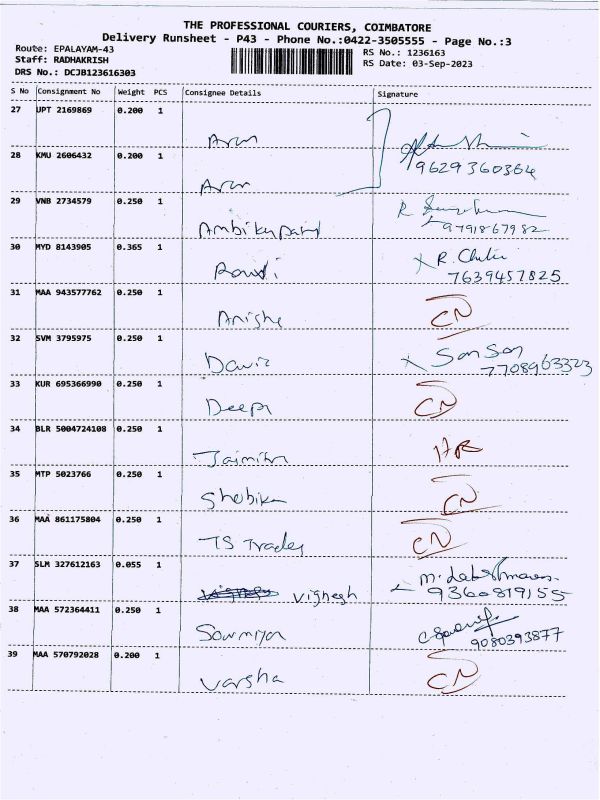 THE PROFESSIONAL COURIERS, COIMBATORE
Delivery Runsheet - P43 - Phone No.:0422-3505555 - Page No.:3
Route: EPALAYAM-43
Staff: RADHAKRISH
DRS No.: DCJB123616303
RS No.: 1236163
RS Date: 03-Sep-2023
S No Consignment No Weight PCS Consignee Details Signature
27 UPT 2169869 0.200 1
Arun
9629360364
28 KMU 2606432 0.200 1
Arun
29 VNB 2734579 0.250 1
Ambikapati
9791867982
30 MYD 8143905 0.365 1
R. Chitu
7639457825
31 MAA 943577762 0.250 1
Anishe CN
32 SVM 3795975 0.250 1
David
7708963323
33 KUR 695366990 0.250 1
Deepa CN
34 BLR 5004724108 0.250 1
35 MTP 5023766 0.250 1
Shobika CN
36 MAA 861175804 0.250 1
TS Trades CN
37 SLM 327612163 0.055 1
Vighesh
9360819155
38 MAA 572364411 0.250 1
Sowmiya
9080393877
39 MAA 570792028 0.200 1
Varsha CN